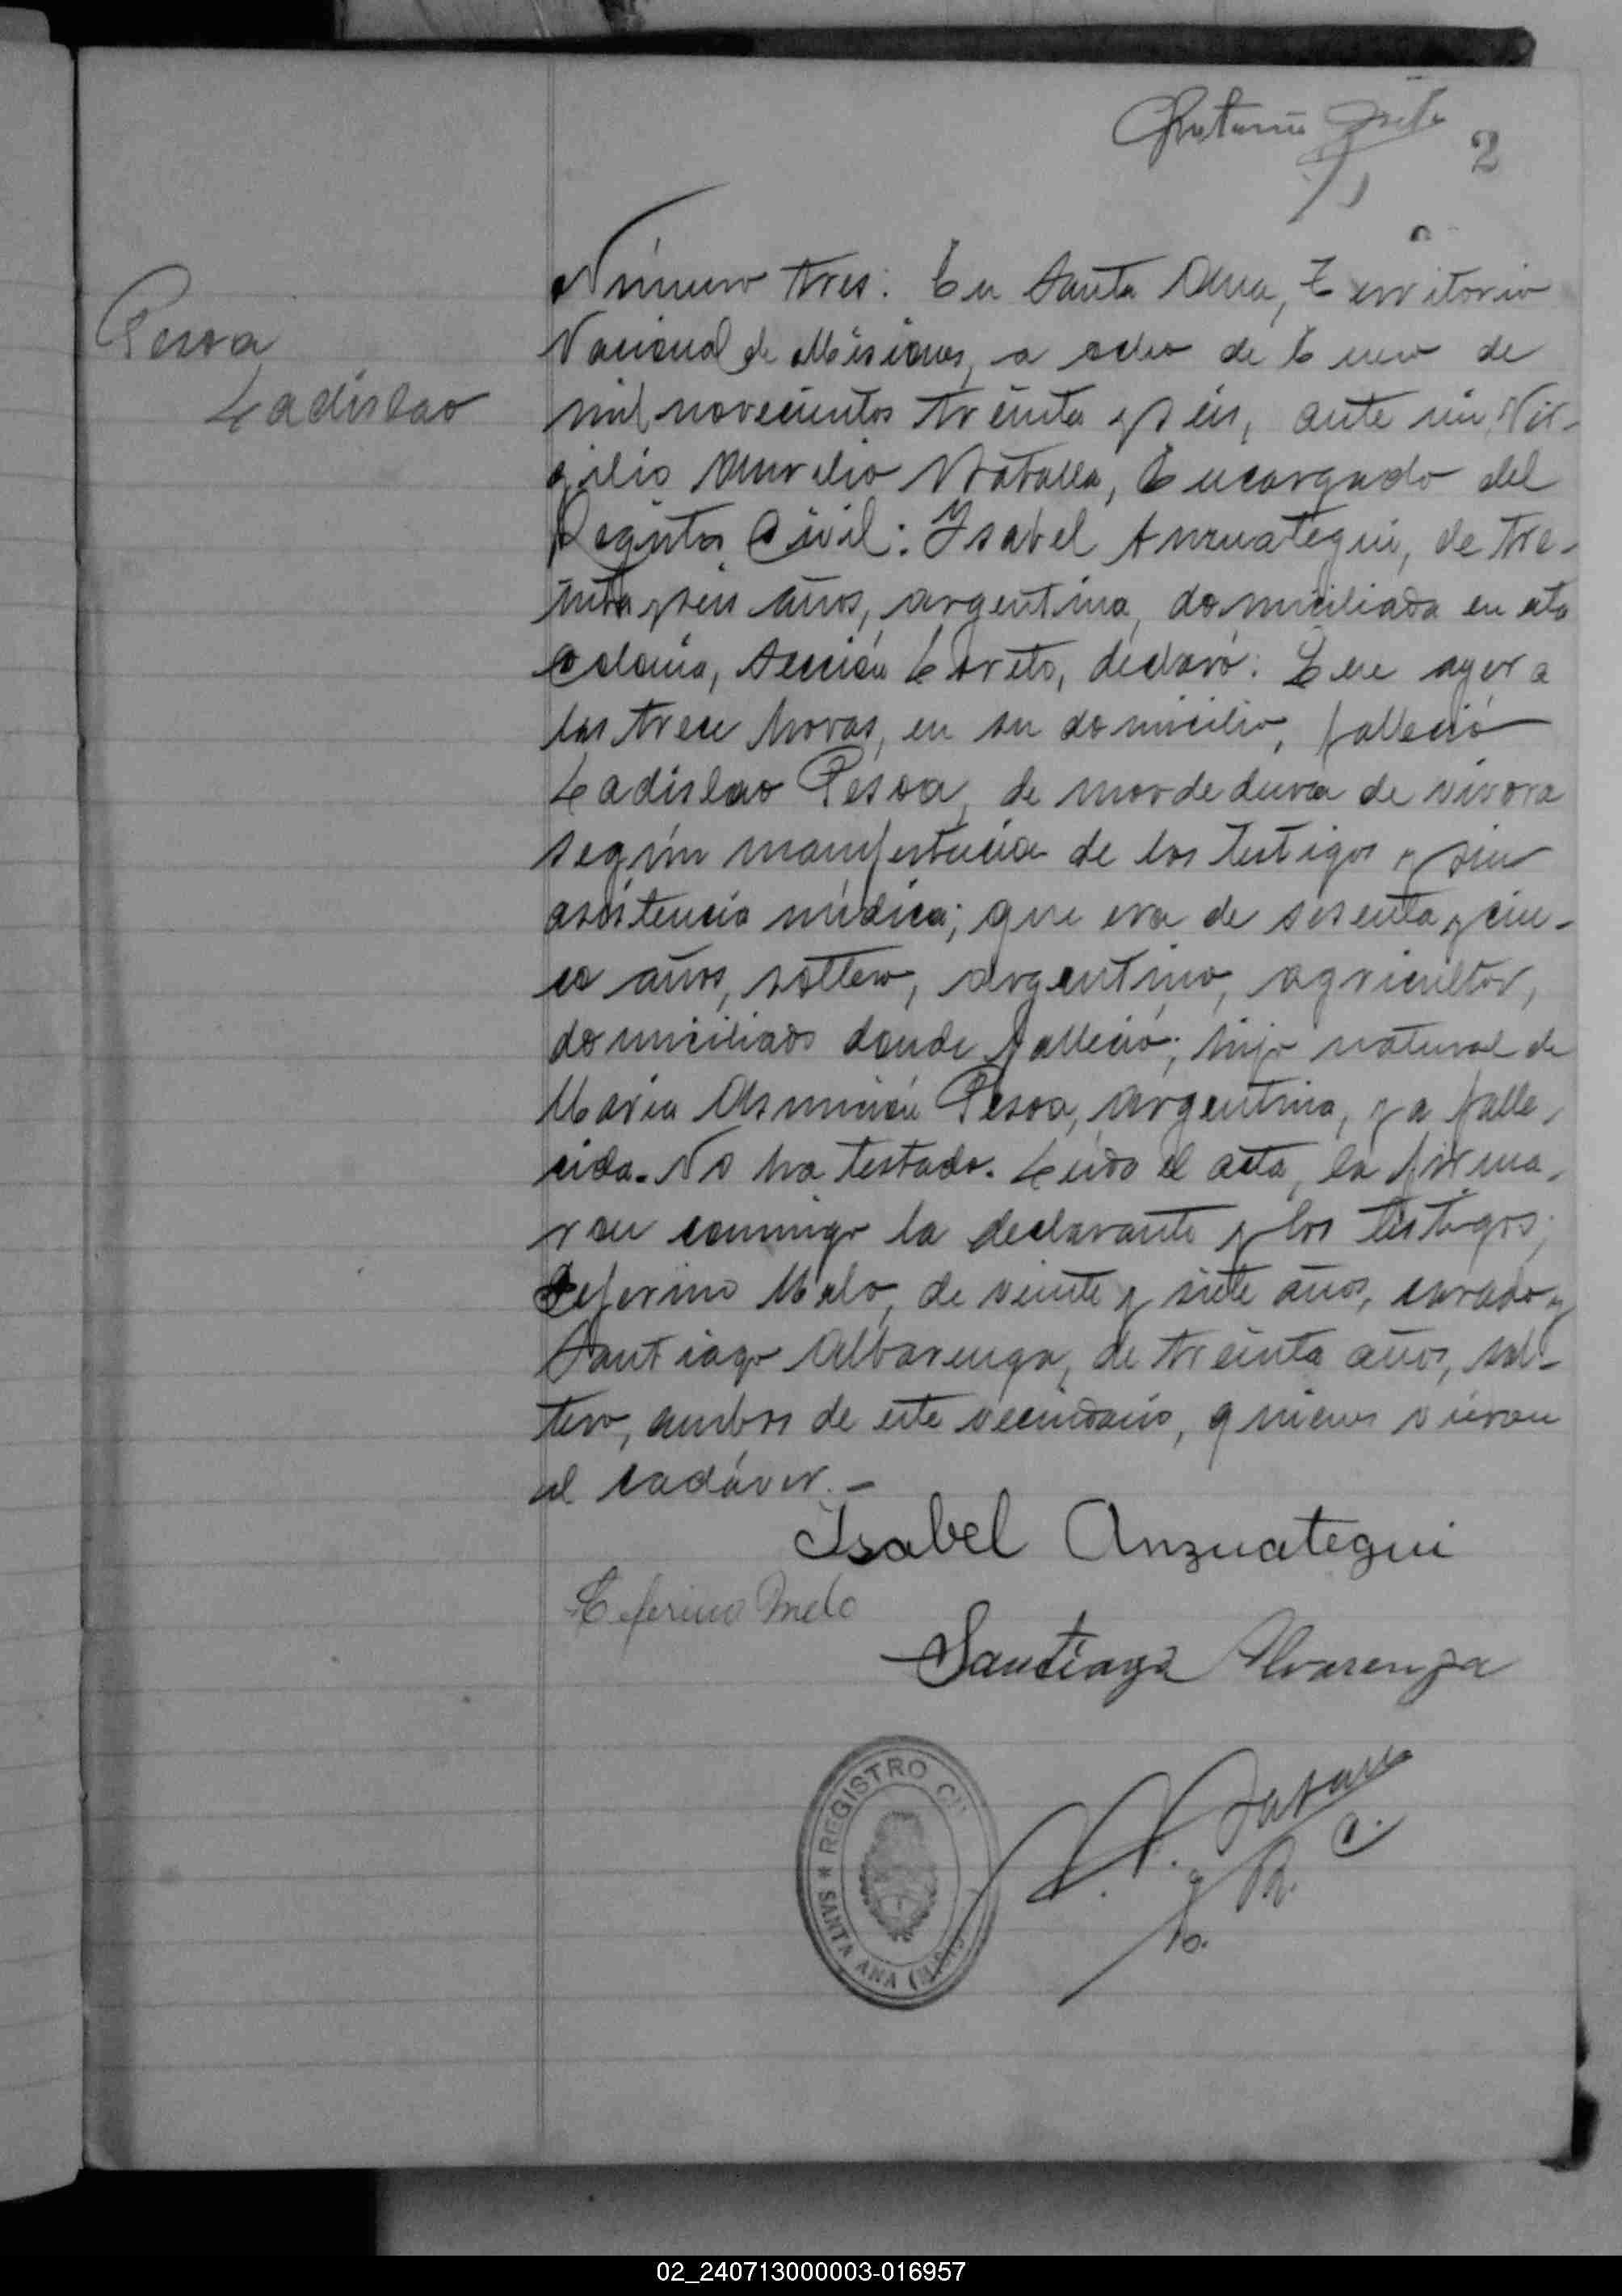 2
Pesoa
Ladislao
Número tres: En Santa Ana, Territorio
Nacional de Misiones, a ocho de Enero de
mil novecientos treinta y seis, ante mi, Vir-
gilio Aurelio Natalla, Encargado del
Registro Civil: Ysabel Anzuategui, de tre-
inta y seis años, argentina, domiciliada en esta
Colonia, Sección Loreto, declaró: Que ayer a
las trece horas, en su domicilio, falleció
Ladislao Pesoa, de mordedura de vivora
según manifestación de los testigos y sin
asistencia médica; que era de sesenta y cin-
co años, soltero, argentino, agricultor,
domiciliado donde falleció; hijo natural de
Maria Asunción Pesoa, argentina, ya falle-
cida. No ha testado. Leido el acta, la firma-
ron conmigo la declarante y los testigos;
Seferino Melo, de veinte y siete años, casado y
Santiago Albarenga, de treinta años, sol-
tero, ambos de este vecindario, quienes vieron
el cadáver.-
Isabel Anzuategui
Ceferino Melo
Santiago Alvarenga
REGISTRO CI
SANTA ANA (MNES
E. R. C.
02_240713000003-016957